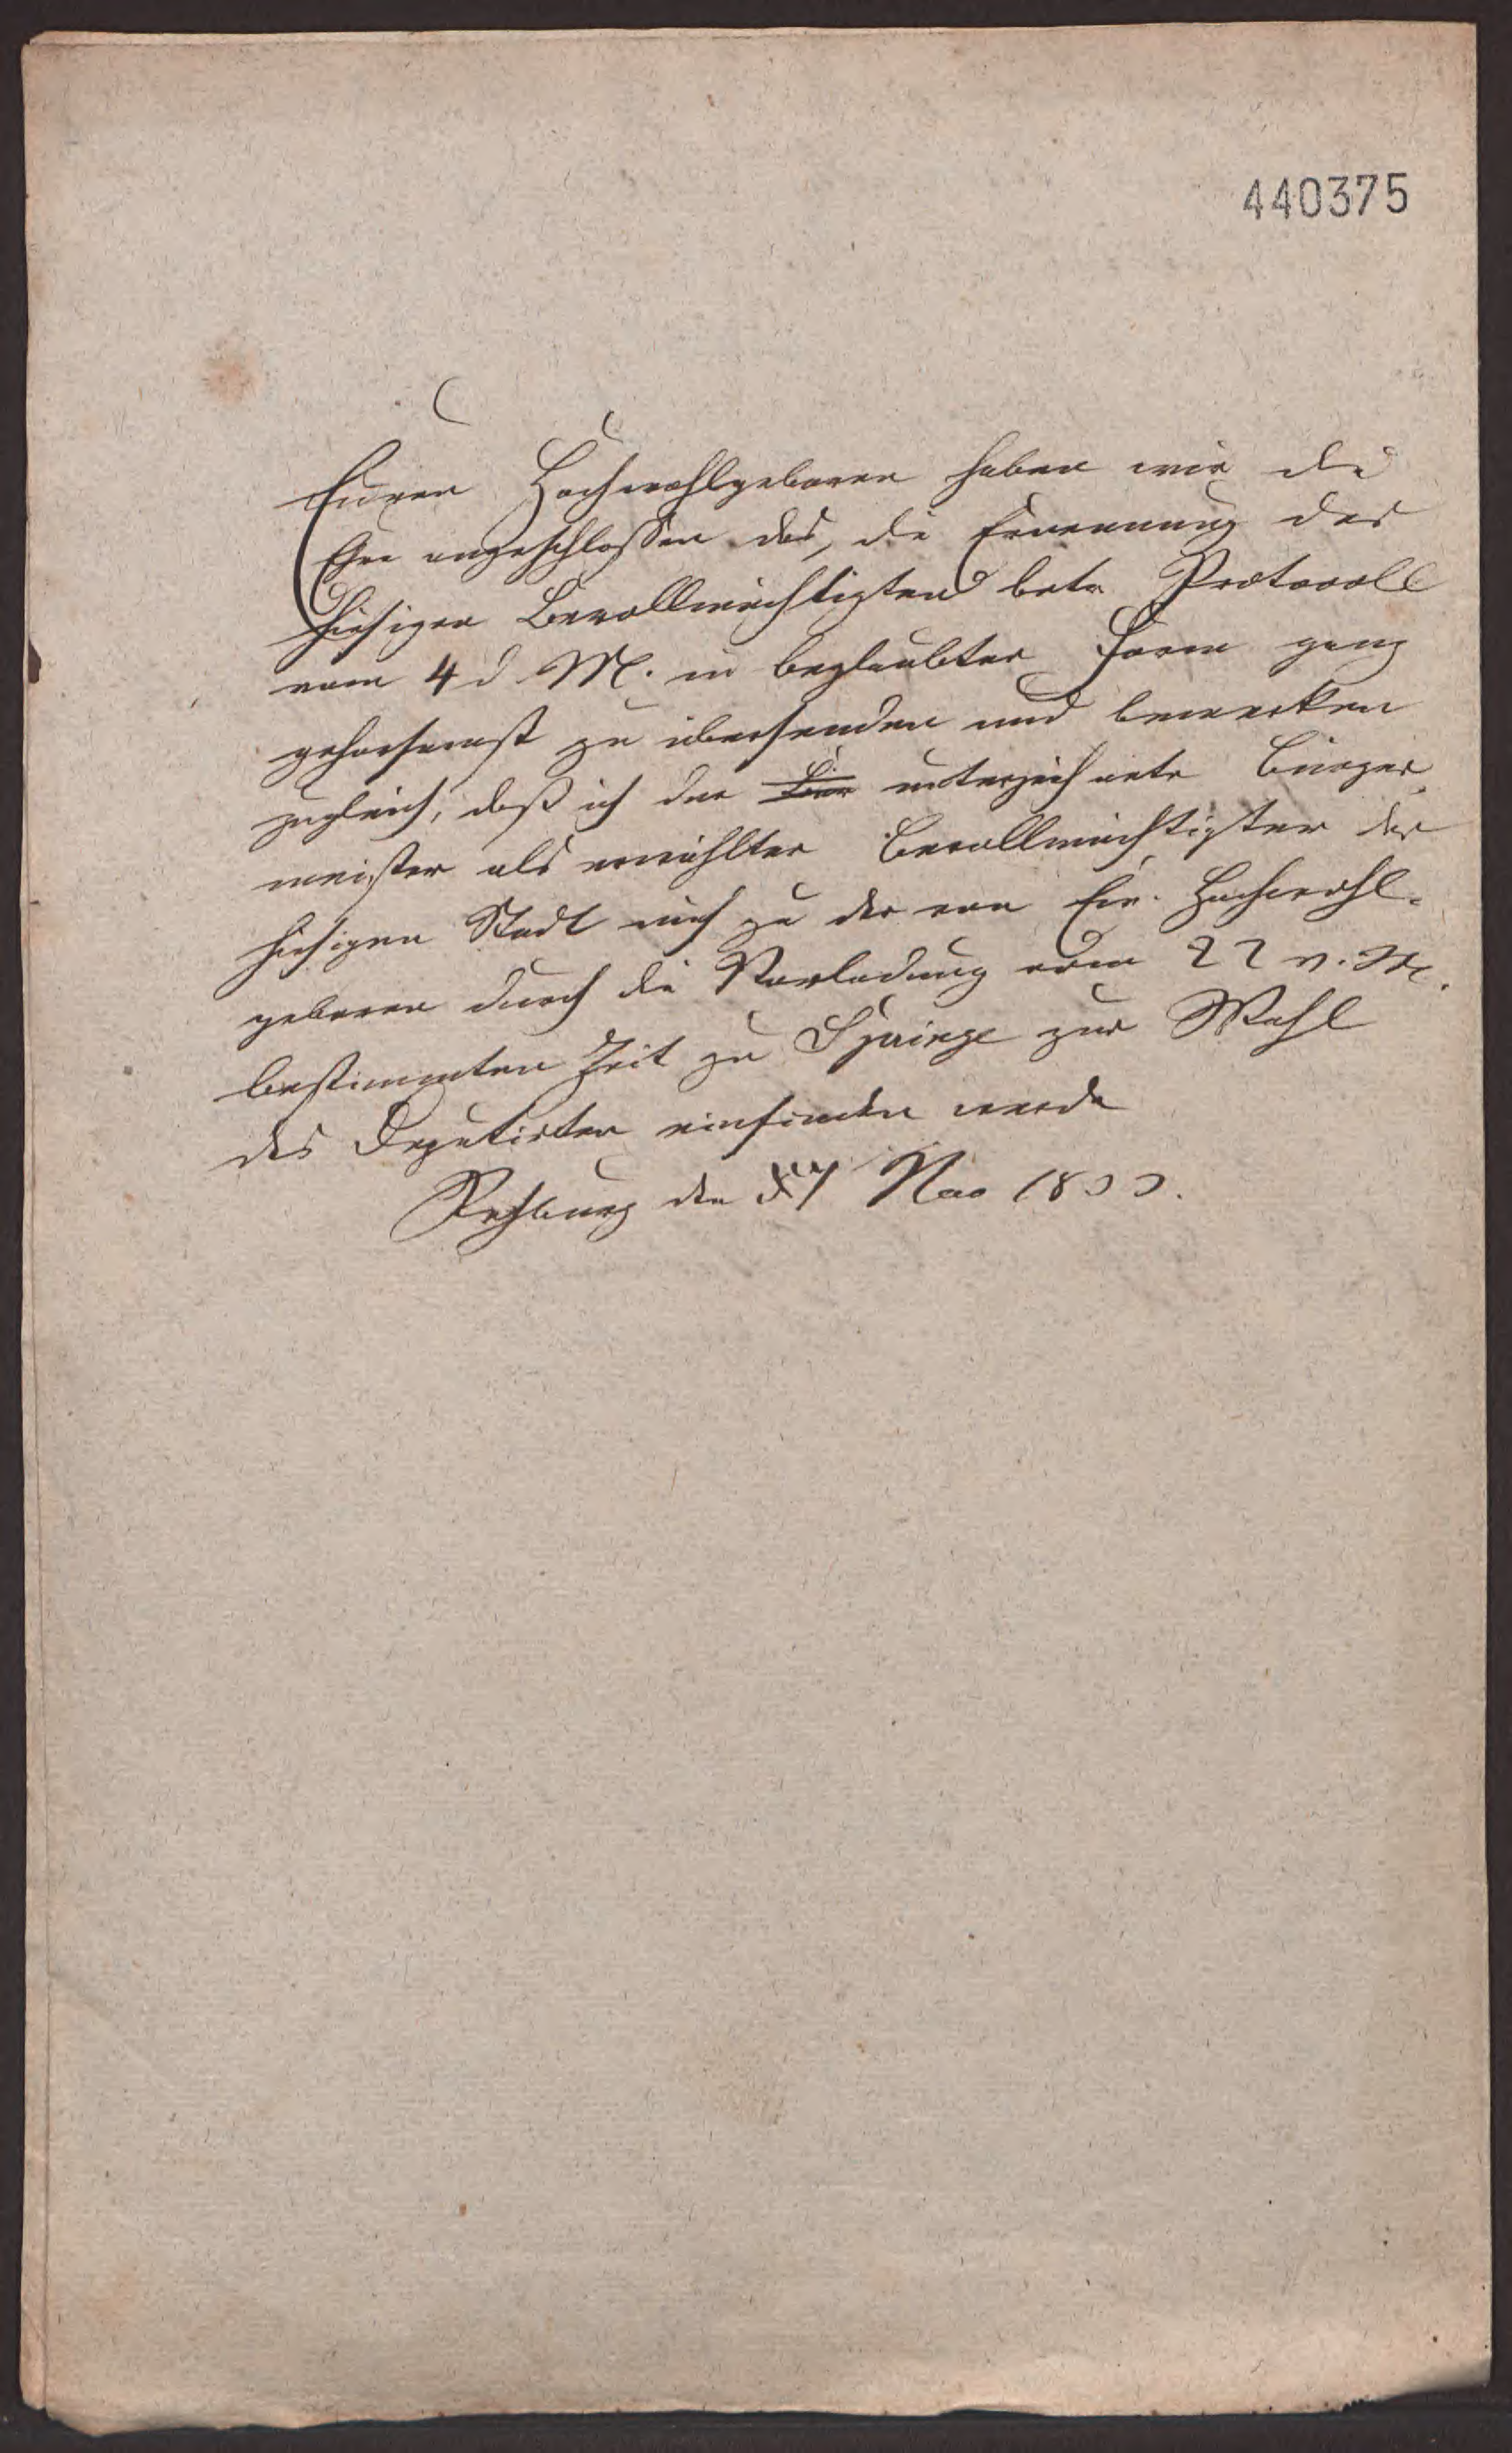 440375
Euren Hochwohlgeboren haben wir die
Ehre angeschlossen das, die Ernennung des
hiesigen Bevollmächtigten betr Protocoll
vom 4 d M. in beglaubter Form ganz
gehorsamst zu übersenden und bemerken
zugleich, daß ich der unterzeichnete Bürger
meister als erwählter Bevollmächtigter der
hiesigen Stadt mich zu der von Ew. Hochwohl-
geboren durch die Vorladung vom 22 v. M.
bestimmten Zeit zu Springe zur Wahl
des Deputirten einfinden werde
Rehburg den Nov 1833.